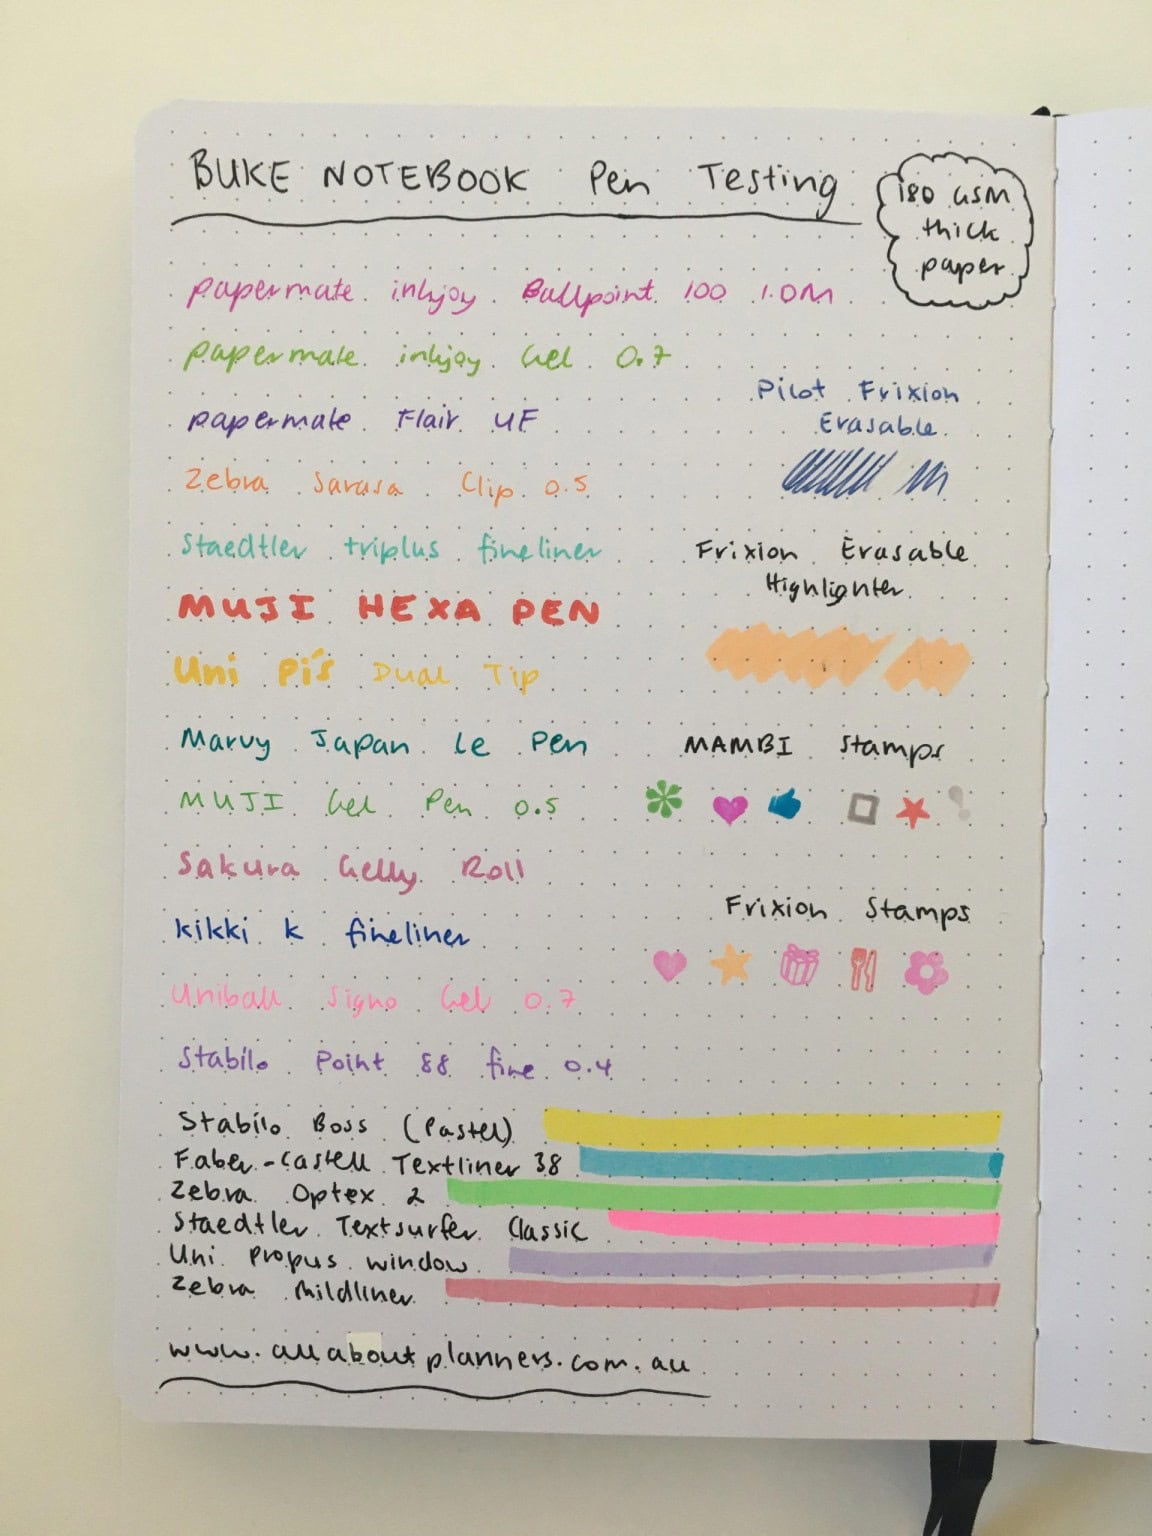 BUKE NOTEBOOK Pen Testing
180 GSM
thick
paper
papermate inkjoy Ballpoint 100 1.0M
papermate inkjoy Gel 0.7
papermate Flair UF
Zebra Sarasa Clip 0.5
Staedtler triplus fineliner
MUJI HEXA PEN
Uni Pi's Dual Tip
Marvy Japan Le Pen
MUJI Gel Pen 0.5
Sakura Gelly Roll
kikki k fineliner
Uniball Signo Gel 0.7
Stabilo Point 88 fine 0.4
Pilot Frixion
Erasable
Frixion Erasable
Highlighter
MAMBI Stamps
Frixion Stamps
Stabilo Boss (Pastel)
Faber-Castell Textliner 38
Zebra Optex 2
Staedtler Textsurfer Classic
Uni Propus window
Zebra Mildliner
www.allaboutplanners.com.au